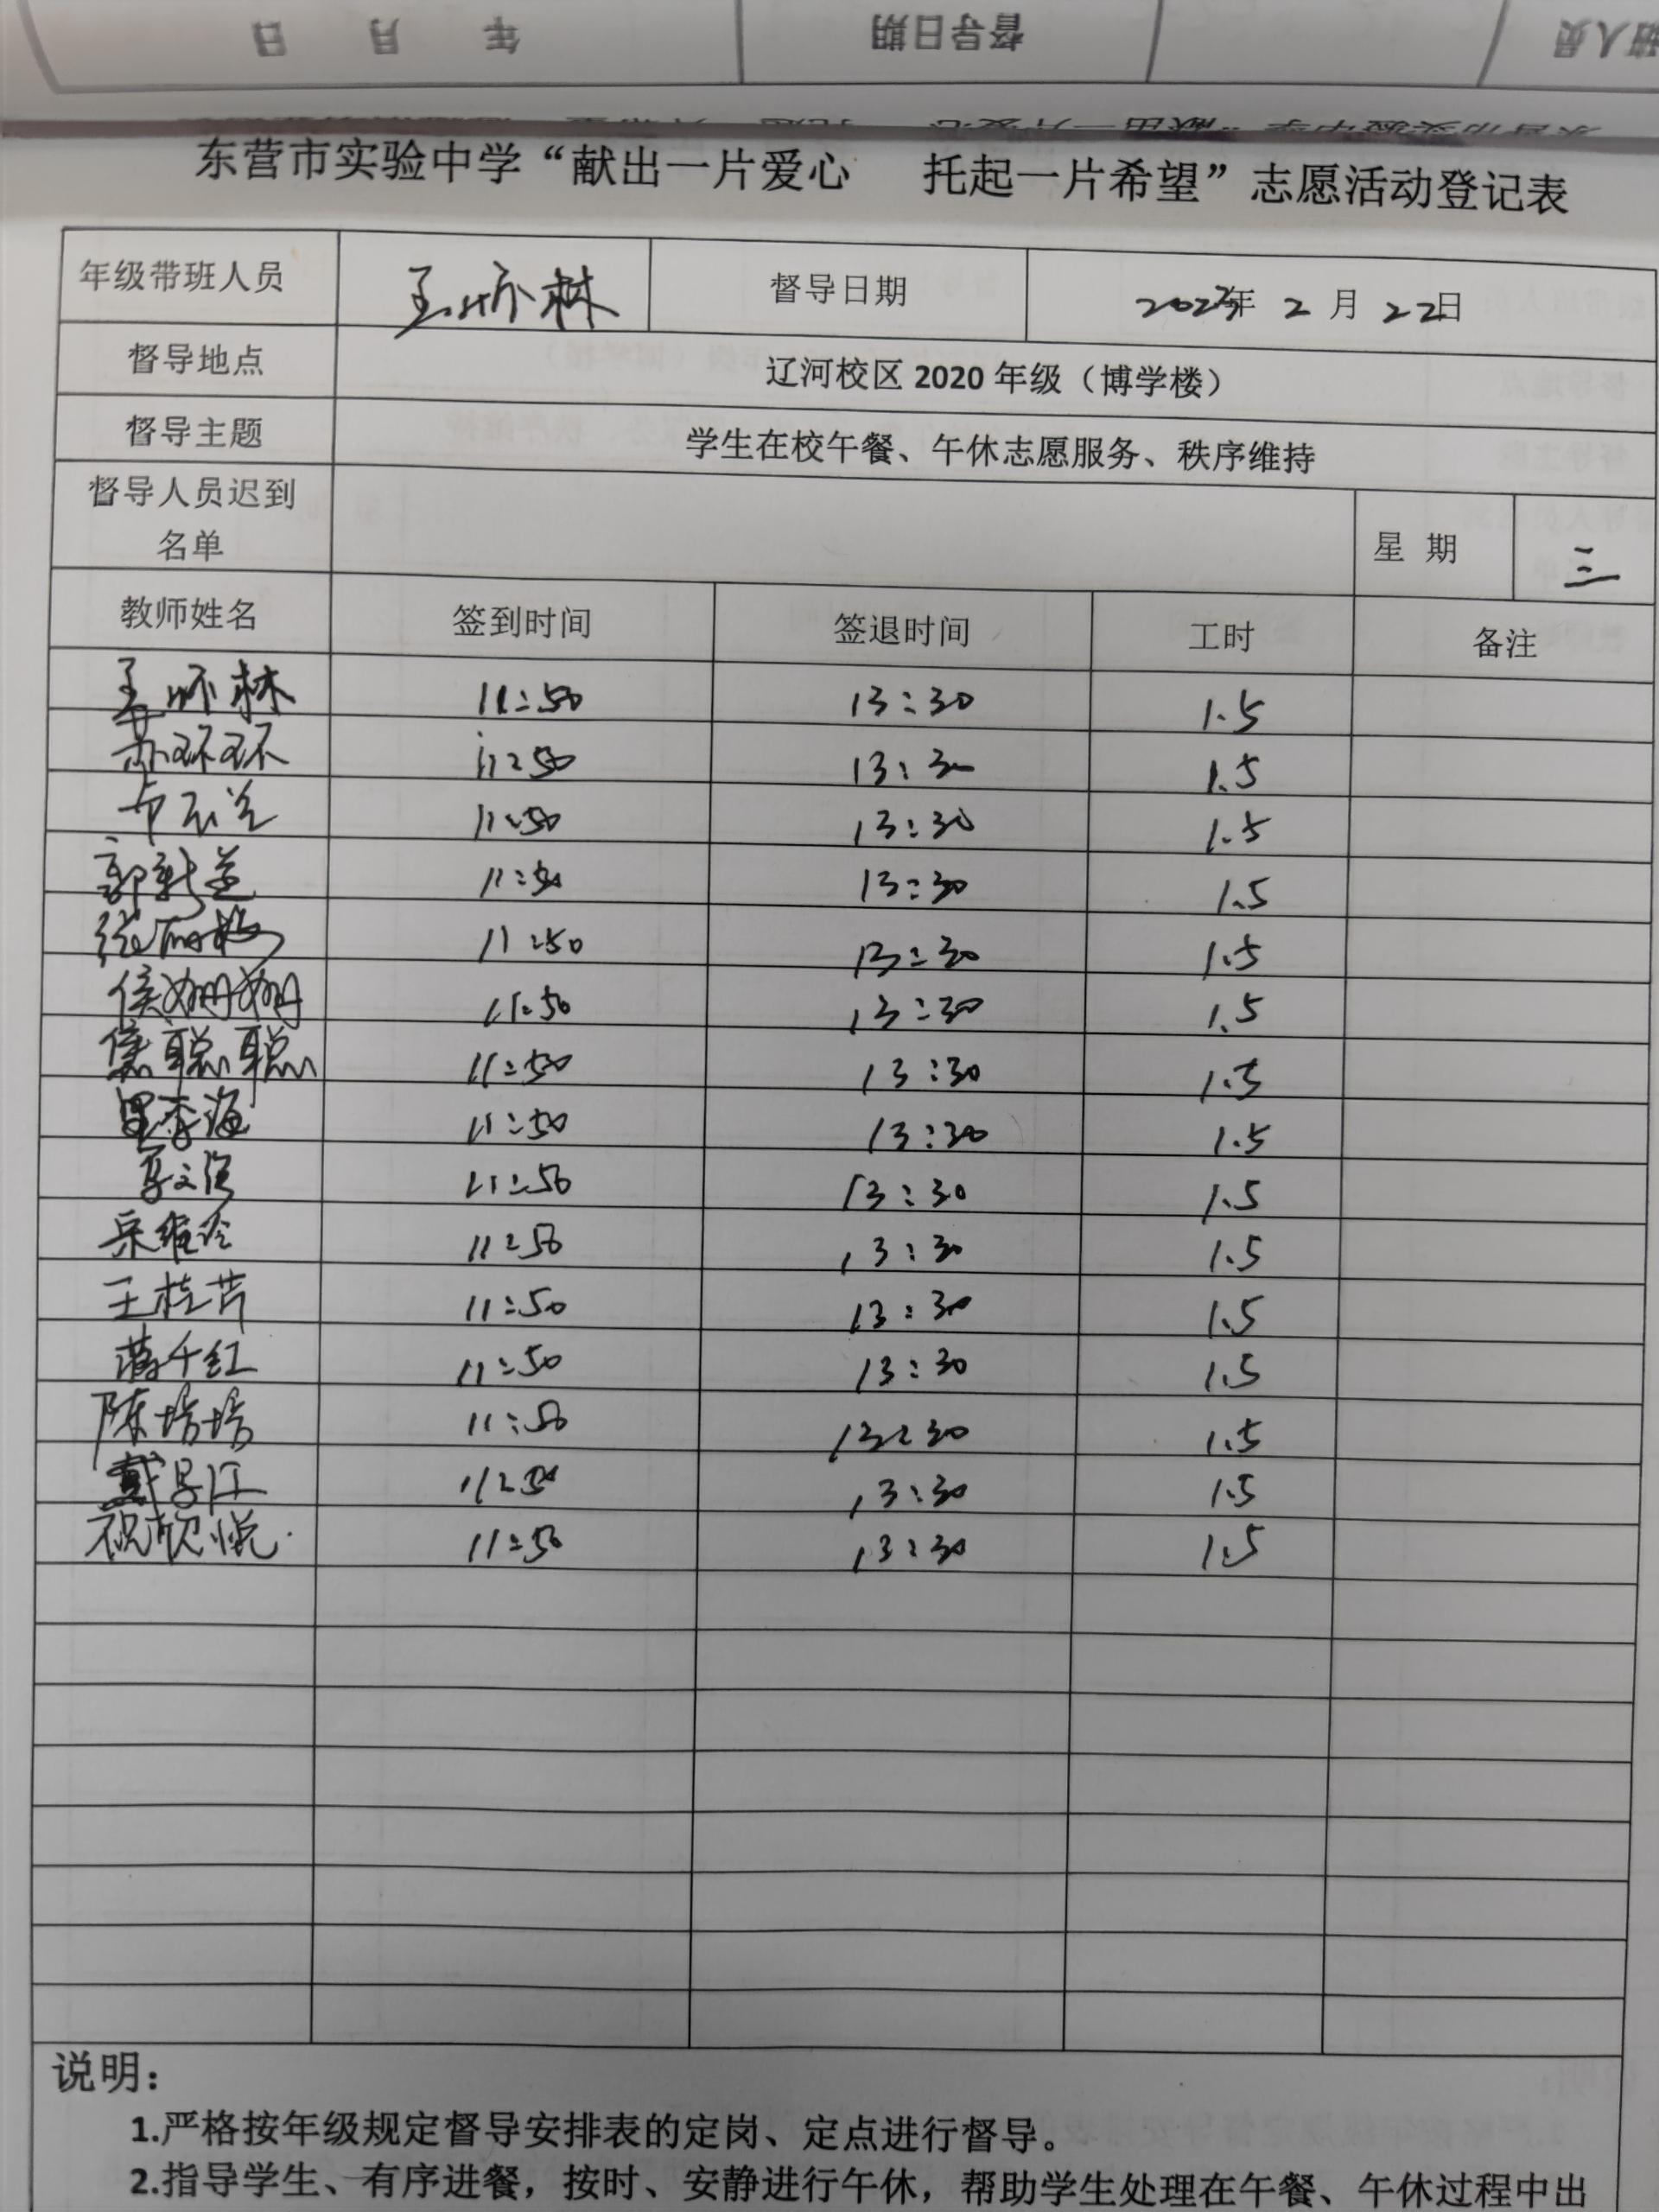 年 月 日 督导日期 班人员
东营市实验中学“献出一片爱心 托起一片希望”志愿活动登记表
年级带班人员 王怀林 督导日期 2023年 2 月 22日
督导地点 辽河校区 2020 年级（博学楼）
督导主题 学生在校午餐、午休志愿服务、秩序维持
督导人员迟到
名单 星 期 三
教师姓名 签到时间 签退时间 工时 备注
王怀林 11:50 13:30 1.5
苏环环 11:50 13:30 1.5
11:50 13:30 1.5
郭新 11:50 13:30 1.5
张丽梅 11:50 13:30 1.5
侯姗姗 11:50 13:30 1.5
侯聪聪 11:50 13:30 1.5
李海 11:50 13:30 1.5
11:50 13:30 1.5
11:50 13:30 1.5
王桂芹 11:50 13:30 1.5
蒋千红 11:50 13:30 1.5
陈培培 11:50 13:30 1.5
戴 江 11:50 13:30 1.5
祝欣悦 11:50 13:30 1.5
说明：
1.严格按年级规定督导安排表的定岗、定点进行督导。
2.指导学生、有序进餐，按时、安静进行午休，帮助学生处理在午餐、午休过程中出